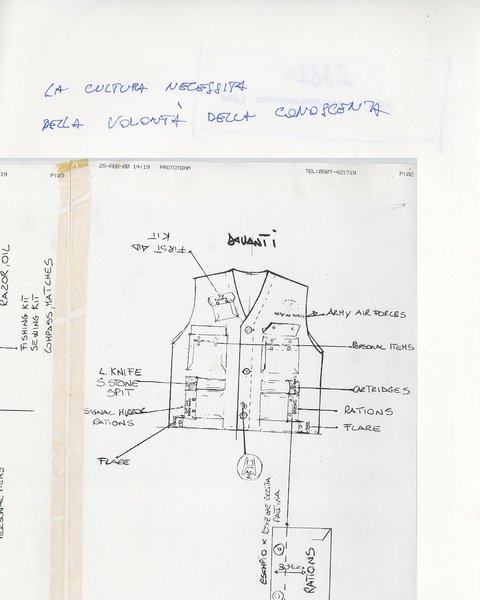 LA CULTURA NECESSITA
DELLA VOLONTÀ DELLA CONOSCENZA
19 P:03
25-FEB-00 14:19 PROTOTEAM TEL:0587-421719 P:02
DAVANTI
FIRST AID
KIT
ARMY AIR FORCES
PERSONAL ITEMS
L. KNIFE
S. STONE
SPIT
CARTRIDGES
SIGNAL MIRROR
RATIONS
RATIONS
FLARE
FLARE
RAZOR, OIL
FISHING KIT
SEWING KIT
COMPASS, MATCHES
PERSONAL ITEMS
ESEMPIO X
PATTINA
RATIONS